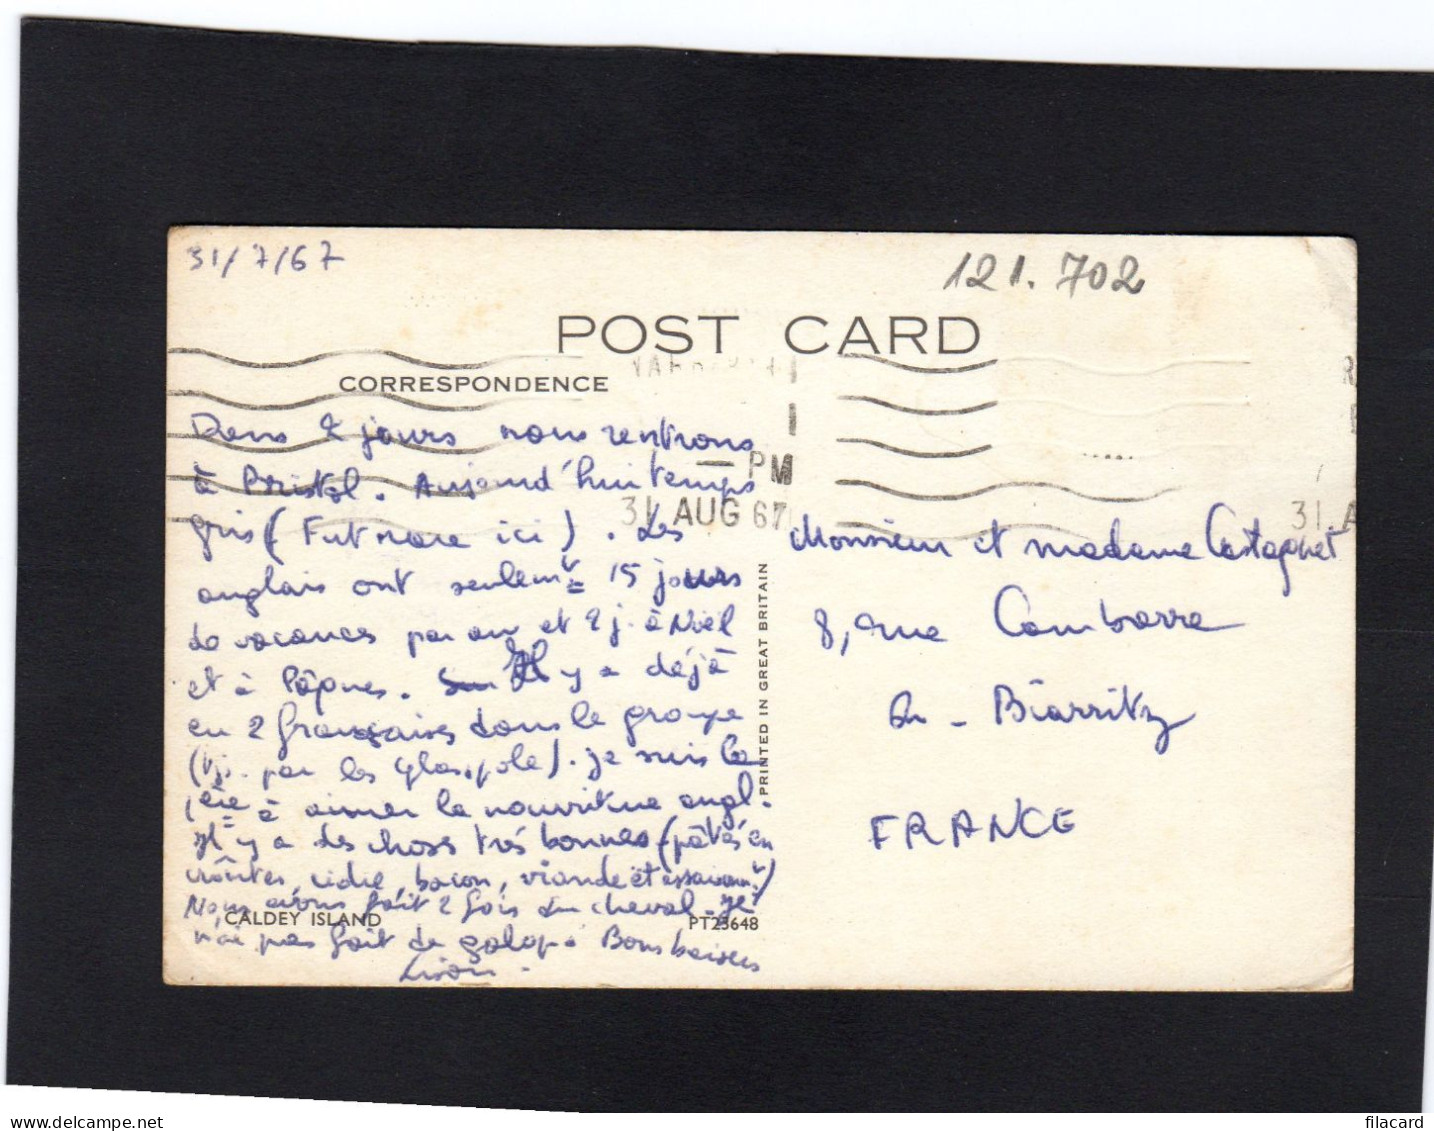 31/7/67
121.702
POST CARD
CORRESPONDENCE
PM
31 AUG 67
31 A
Dans 2 jours nous rentrons
à Bristol. Aujourd'hui temps
gris (         ici). Les
anglais ont seulemt 15 jours
de vacances par an et 2 j. à Noël
et à Pâques. Il y a déjà
eu 2 françaises dans le groupe
(       par les          ). Je suis la
1ère à aimer la nourriture angl.
Il y a des choses très bonnes (pâtés en
croûtes, cidre, bacon, viande et assaisonnt)
Nous avons fait 2 fois du cheval. Je
n'ai pas fait de galop. Bons baisers
Lison.
CALDEY ISLAND
PT23648
PRINTED IN GREAT BRITAIN
Monsieur et madame Castagnet
8, rue Cambarre
Biarritz
FRANCE
filacard